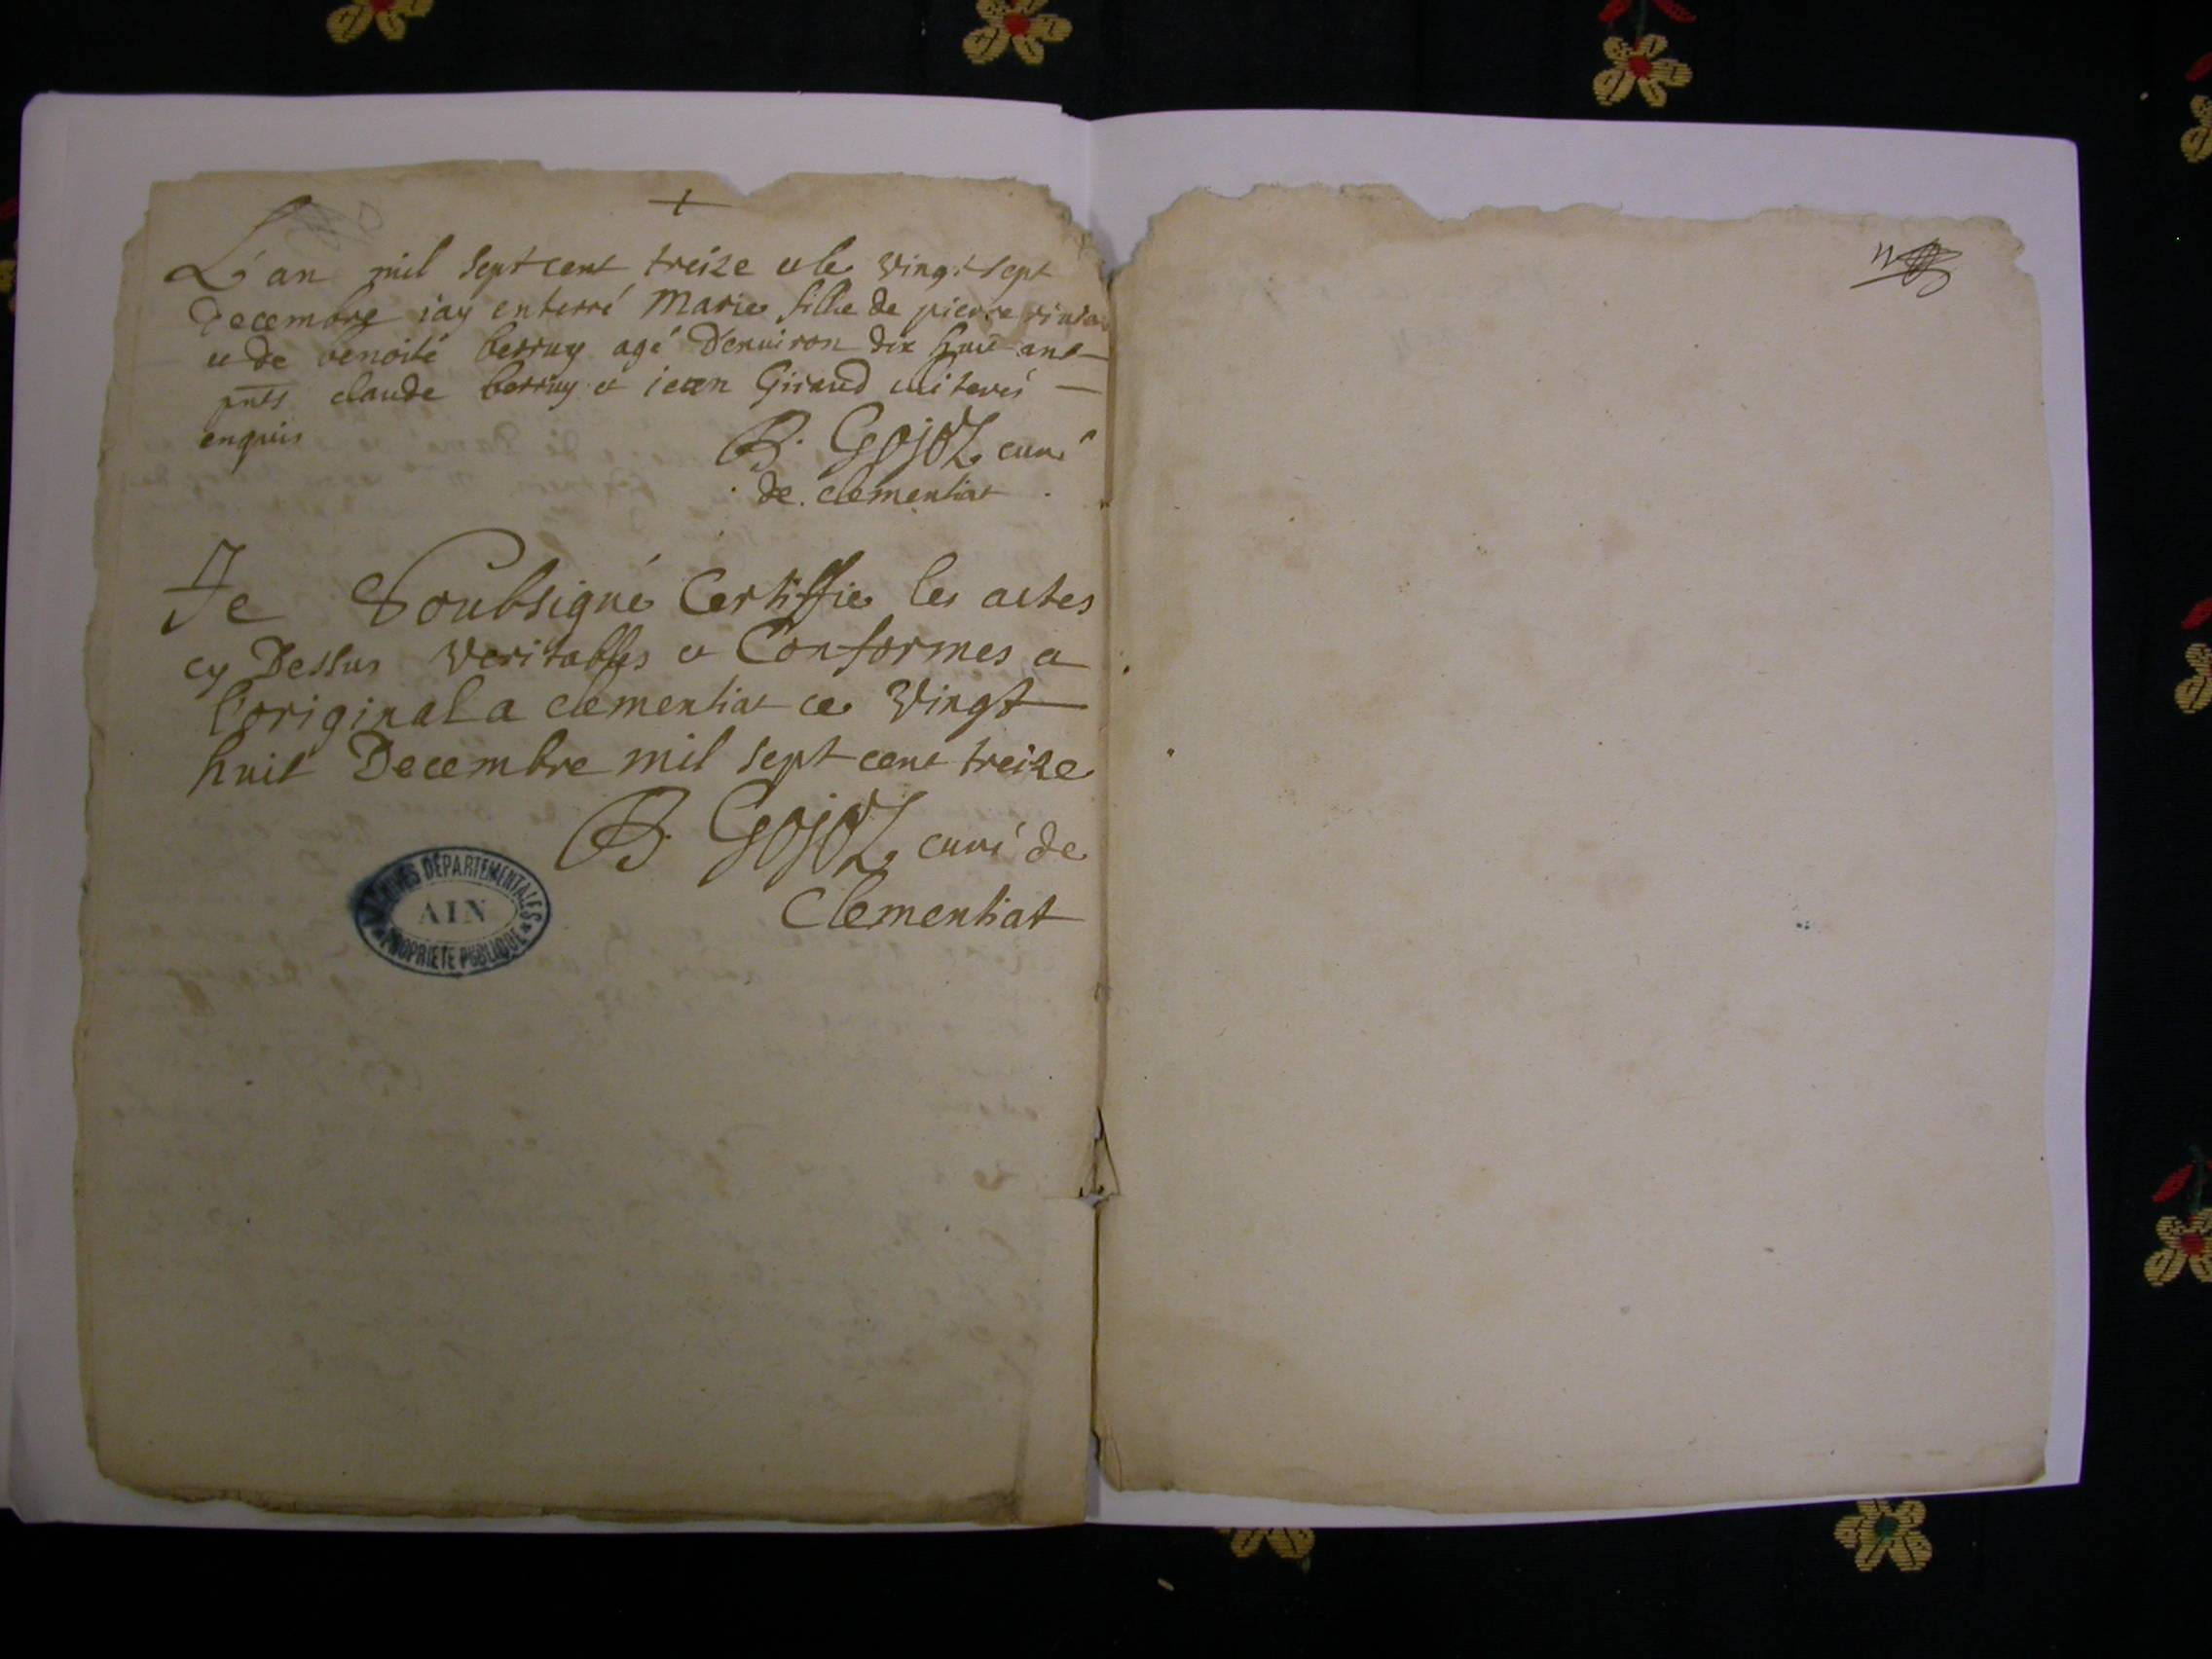 +
L'an mil sept cent treize et le vingt sept
Decembre iay enterré Marie fille de pierre
et de benoite berruy agé D'enuiron dix huit ans
pnts claude berruy et iean Giraud illiterés
enquis
B. GOJOZ curé
de clementiat
Je Soubsigné Certiffie les actes
cy Dessus veritables et Conformes a
l'original a clementiat ce vingt
huit Decembre mil sept cent treize
B. GOJOZ curé de
Clementiat
ARCHIVES DÉPARTEMENTALES
AIN
PROPRIÉTÉ PUBLIQUE